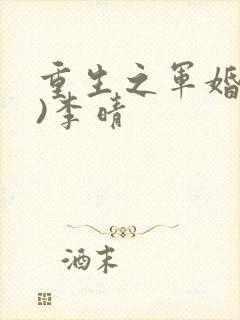 重生之军婚
)李晴
酒末